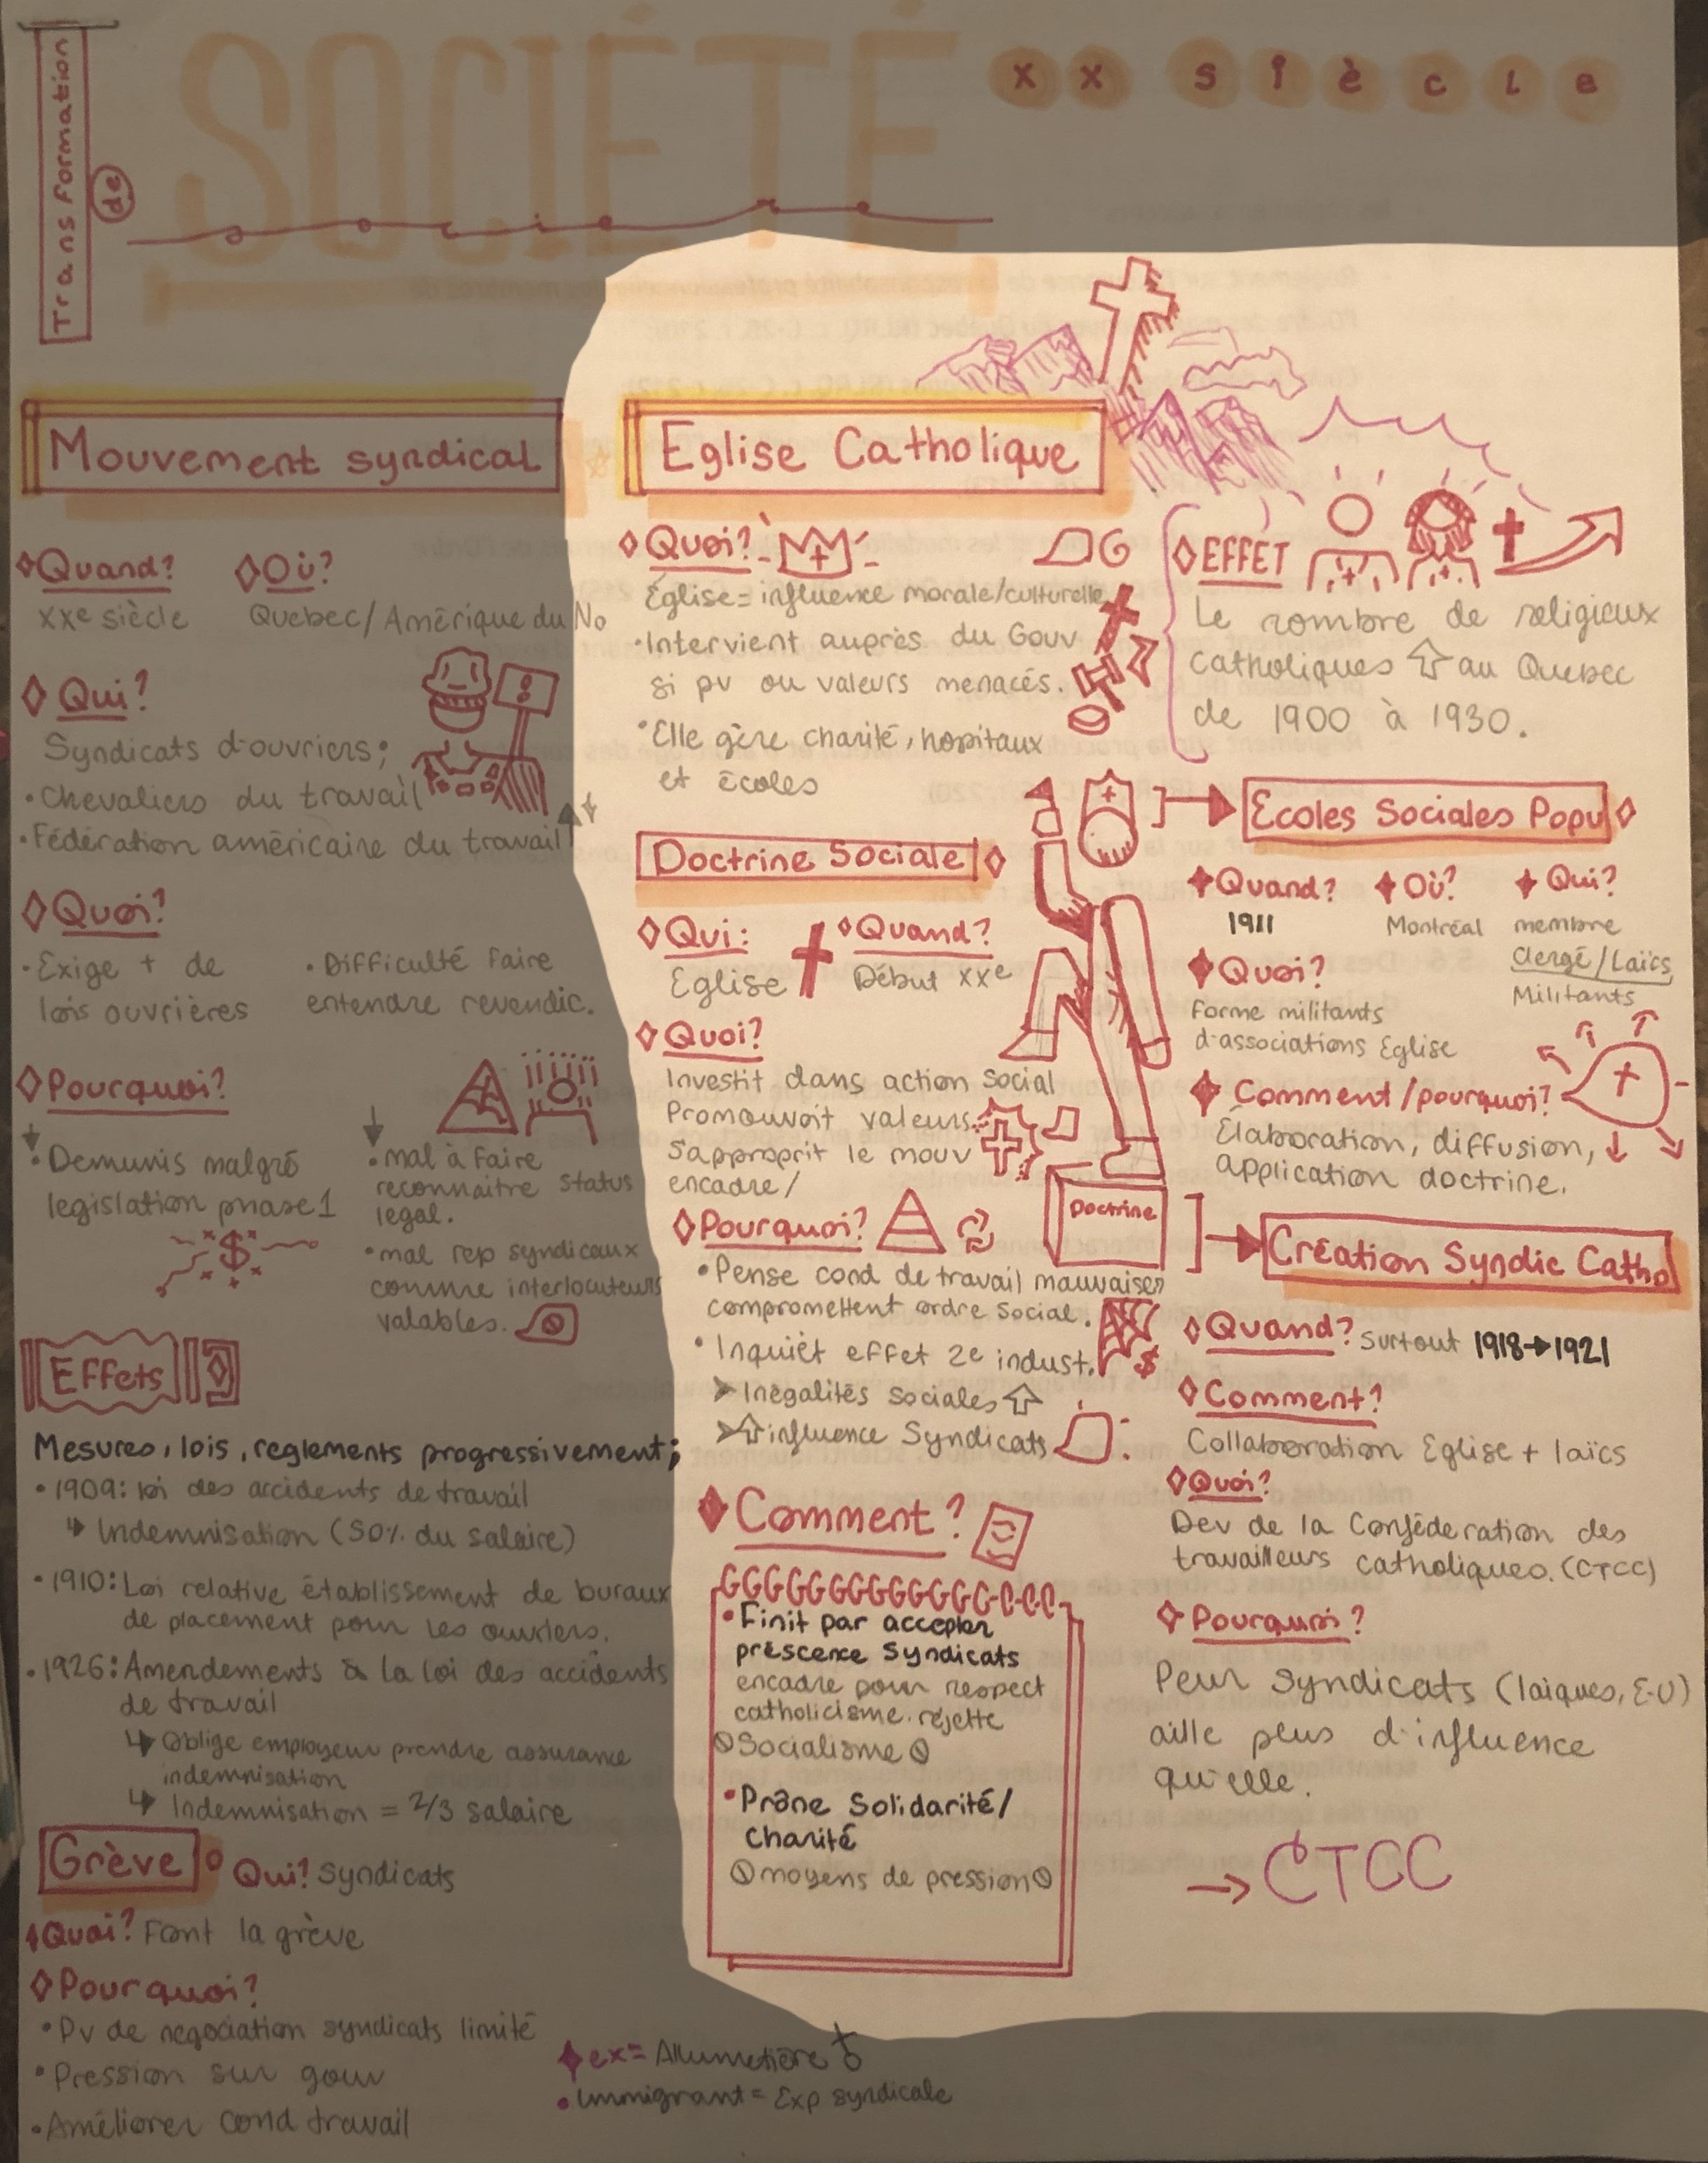 Transformation
de
SOCIÉTÉ
XX siècle
Mouvement syndical
Quand?
XXe siècle
Où?
Quebec/Amérique du No
Qui?
Syndicats d'ouvriers;
• Chevaliers du travail
• Fédération américaine du travail
Quoi?
• Exige + de
lois ouvrières
• Difficulté faire
entendre revendic.
Pourquoi?
• Demunis malgré
legislation phase 1
• mal à faire
reconnaitre status
legal.
• mal rep syndicaux
comme interlocuteurs
valables.
Effets
Mesures, lois, reglements progressivement;
• 1909: loi des accidents de travail
↳ Indemnisation (50% du salaire)
• 1910: Loi relative établissement de buraux
de placement pour les ouvriers.
• 1926: Amendements à la loi des accidents
de travail
↳ Oblige employeur prendre assurance
indemnisation
↳ Indemnisation = 2/3 salaire
Grève
Qui? Syndicats
Quoi? Font la grève
Pourquoi?
• Pv de negociation syndicats limité
• Pression sur gouv
• Améliorer cond travail
ex= Allumetière
• immigrant = Exp syndicale
Eglise Catholique
Quoi?
Église = influence morale/culturelle
• Intervient auprès du Gouv
si pv ou valeurs menacés.
• Elle gère charité, hopitaux
et écoles
EFFET
Le nombre de religieux
catholiques ⇧ au Quebec
de 1900 à 1930.
Doctrine Sociale
Qui:
Eglise
Quand?
Début XXe
Quoi?
Investit dans action social
Promouvoit valeurs
S'approprit le mouv
encadre/
Pourquoi?
• Pense cond de travail mauvaises
compromettent ordre social.
• Inquièt effet 2e indust.
$
➤ Inégalités sociales ⇧
➤ ⇧ influence Syndicats
Comment?
• Finit par accepter
préscence Syndicats
encadre pour respect
catholicisme. rejette
Socialisme
• Prône Solidarité/
charité
moyens de pression
Doctrine
Ecoles Sociales Popu
Quand?
1911
Où?
Montréal
Qui?
membre
clergé/Laïcs
Militants
Quoi?
Forme militants
d'associations Eglise
Comment/pourquoi?
Élaboration, diffusion,
application doctrine.
Création Syndic Catho
Quand? Surtout 1918→1921
Comment?
Collaboration Eglise + laïcs
Quoi?
Dev de la Confédération des
travailleurs catholiques. (CTCC)
Pourquoi?
Peur Syndicats (laïques, E-U)
aille plus d'influence
qu'elle.
→ CTCC